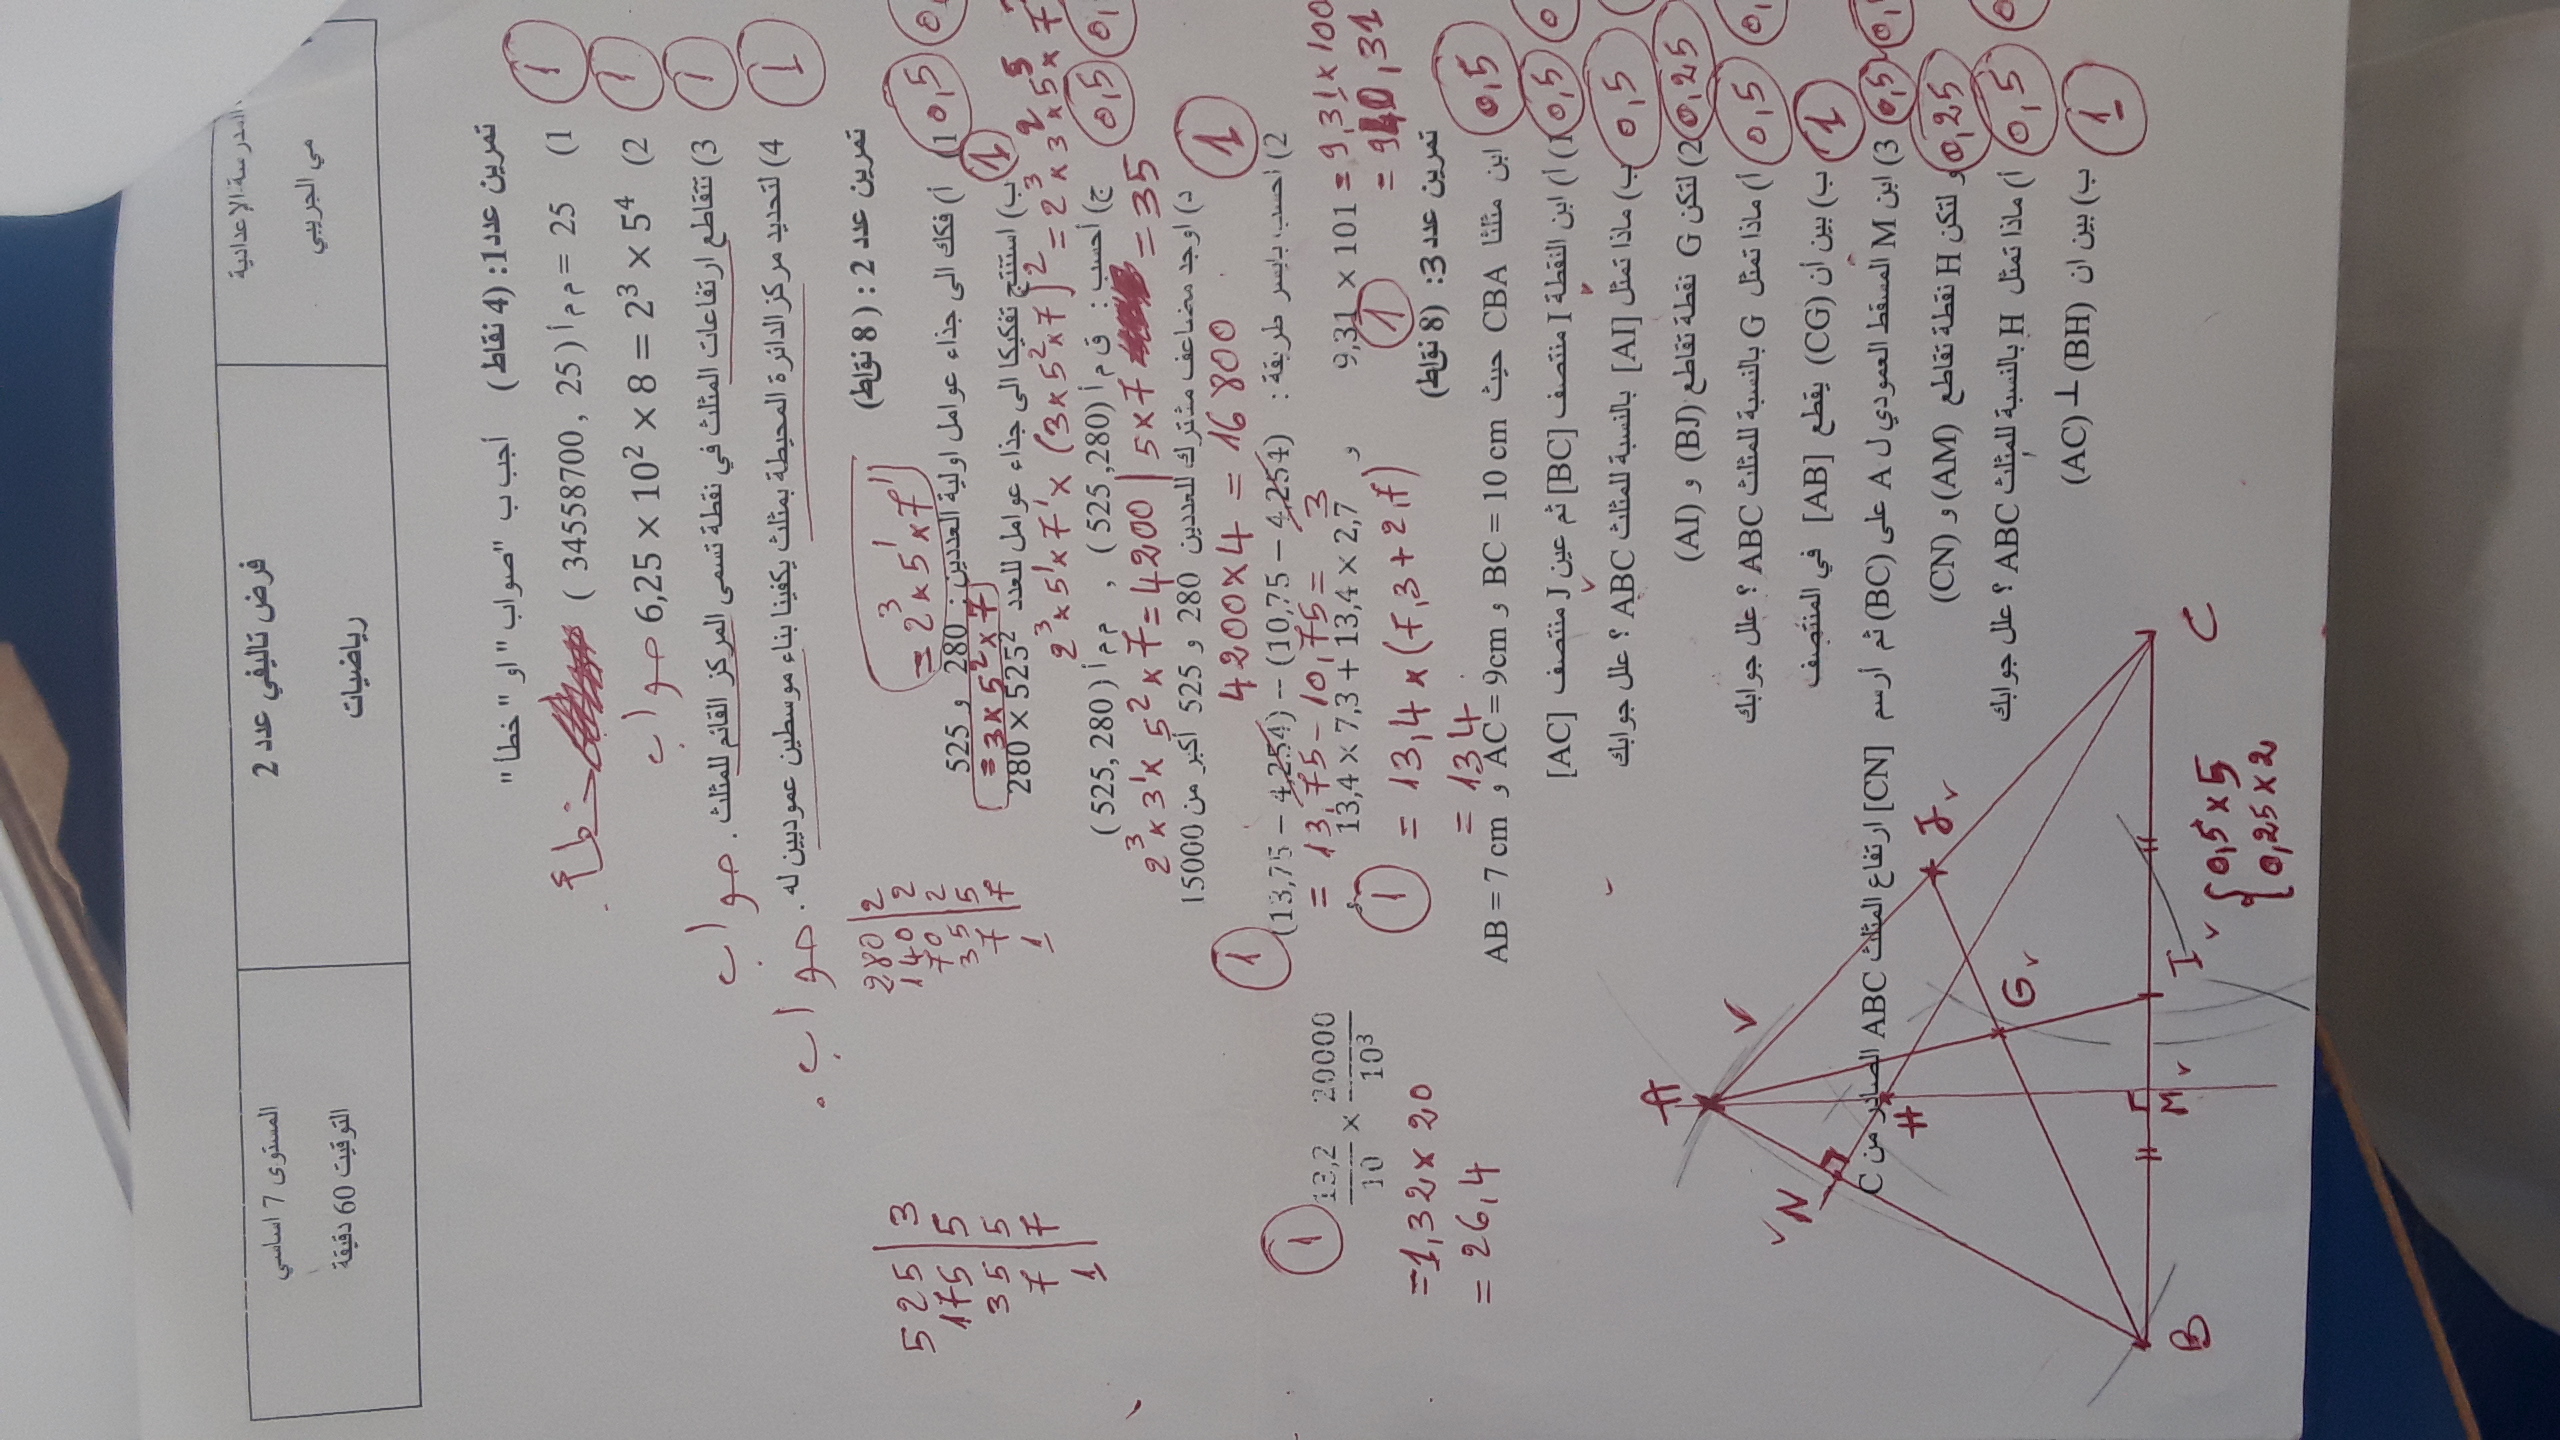 المدرسة الإعدادية
مي الجريبي
فرض تاليفي عدد 2
رياضيات
المستوى 7 اساسي
التوقيت 60 دقيقة
تمرين عدد 1: (4 نقاط) أجب ب "صواب" او "خطأ"
1) م م أ (25 , 34558700) = 25 خطأ
1
2) 6,25 × 10² × 8 = 2³ × 5⁴ صواب
1
3) تتقاطع ارتفاعات المثلث في نقطة تسمى المركز القائم للمثلث. صواب
1
4) لتحديد مركز الدائرة المحيطة بمثلث يكفينا بناء موسطين عموديين له. صواب
1
تمرين عدد 2: (8 نقاط)
= 2³ × 5¹ × 7¹
280 | 2
140 | 2
70 | 2
35 | 5
7 | 7
1
525 | 3
175 | 5
35 | 5
7 | 7
1
0,5
1) أ) فكك الى جذاء عوامل اولية العددين: 280 و 525
= 3 × 5² × 7
1
ب) استنتج تفكيكا الى جذاء عوامل للعدد 280 × 525²
2³ × 5¹ × 7¹ × (3 × 5² × 7)² = 2³ × 3² × 5⁵ × 7
ج) أحسب: ق م أ (525,280) , م م أ (525,280)
0,5
2³ × 3¹ × 5² × 7 = 4200 | 5 × 7 = 35
د) اوجد مضاعف مشترك للعددين 280 و 525 أكبر من 15000
4200 × 4 = 16800
1
2) احسب بايسر طريقة:
(13,75 − 4,254) − (10,75 − 4,254)
= 13,75 − 10,75 = 3
1
13,4 × 7,3 + 13,4 × 2,7 و 9,31 × 101 = 9,31 × 100
= 13,4 × (7,3 + 2,7)
= 134
1
= 940,31
1
13,2/10 × 20000/10³
= 1,32 × 20
= 26,4
1
تمرين عدد 3: (8 نقاط)
ابن مثلثا CBA حيث BC = 10 cm و AC = 9cm و AB = 7 cm
0,5
1) أ) ابن النقطة I منتصف [BC] ثم عين J منتصف [AC]
0,5
ب) ماذا تمثل [AI] بالنسبة للمثلث ABC ؟ علل جوابك
0,5
2) لتكن G نقطة تقاطع (BJ) و (AI)
0,25
أ) ماذا تمثل G بالنسبة للمثلث ABC ؟ علل جوابك
0,5
ب) بين أن (CG) يقطع [AB] في المنتصف
1
3) ابن M المسقط العمودي ل A على (BC) ثم أرسم [CN] ارتفاع المثلث ABC الصادر من C
0,5
و لتكن H نقطة تقاطع (AM) و (CN)
0,25
أ) ماذا تمثل H بالنسبة للمثلث ABC ؟ علل جوابك
0,5
ب) بين ان (BH) ⊥ (AC)
1
A
N
H
J
G
B
M
I
C
0,5 × 5
0,25 × 2